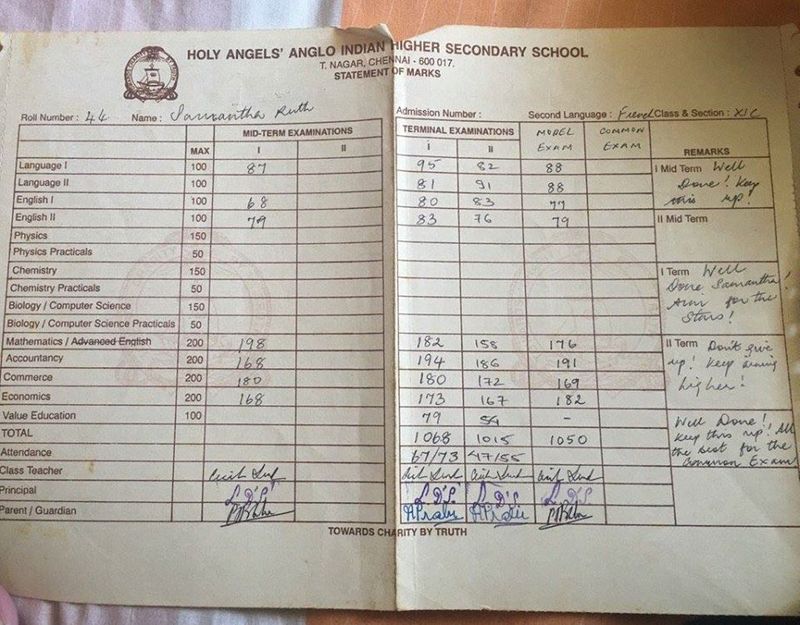 HOLY ANGELS' ANGLO INDIAN HIGHER SECONDARY SCHOOL
T. NAGAR, CHENNAI - 600 017.
STATEMENT OF MARKS
Roll Number : 44 Name : Samantha Ruth Admission Number : Second Language : French Class & Section : XI C
MID-TERM EXAMINATIONS TERMINAL EXAMINATIONS MODEL EXAM COMMON EXAM
MAX I II i II REMARKS
Language I 100 87 95 82 88
Language II 100 81 91 88
English I 100 68 80 83 77
English II 100 79 83 76 79
Physics 150
Physics Practicals 50
Chemistry 150
Chemistry Practicals 50
Biology / Computer Science 150
Biology / Computer Science Practicals 50
Mathematics / Advanced English 200 198 182 158 176
Accountancy 200 168 194 186 191
Commerce 200 180 180 172 169
Economics 200 168 173 167 182
Value Education 100 79 54 -
TOTAL 1068 1015 1050
Attendance 67/73 47/55
Class Teacher
Principal
Parent / Guardian
I Mid Term Well
Done! Keep
this up!
II Mid Term
I Term Well
Done Samantha!
Aim for the
Stars!
II Term Don't give
up! Keep aiming
higher!
Well Done!
Keep this up! All
the best for the
Common Exam
TOWARDS CHARITY BY TRUTH